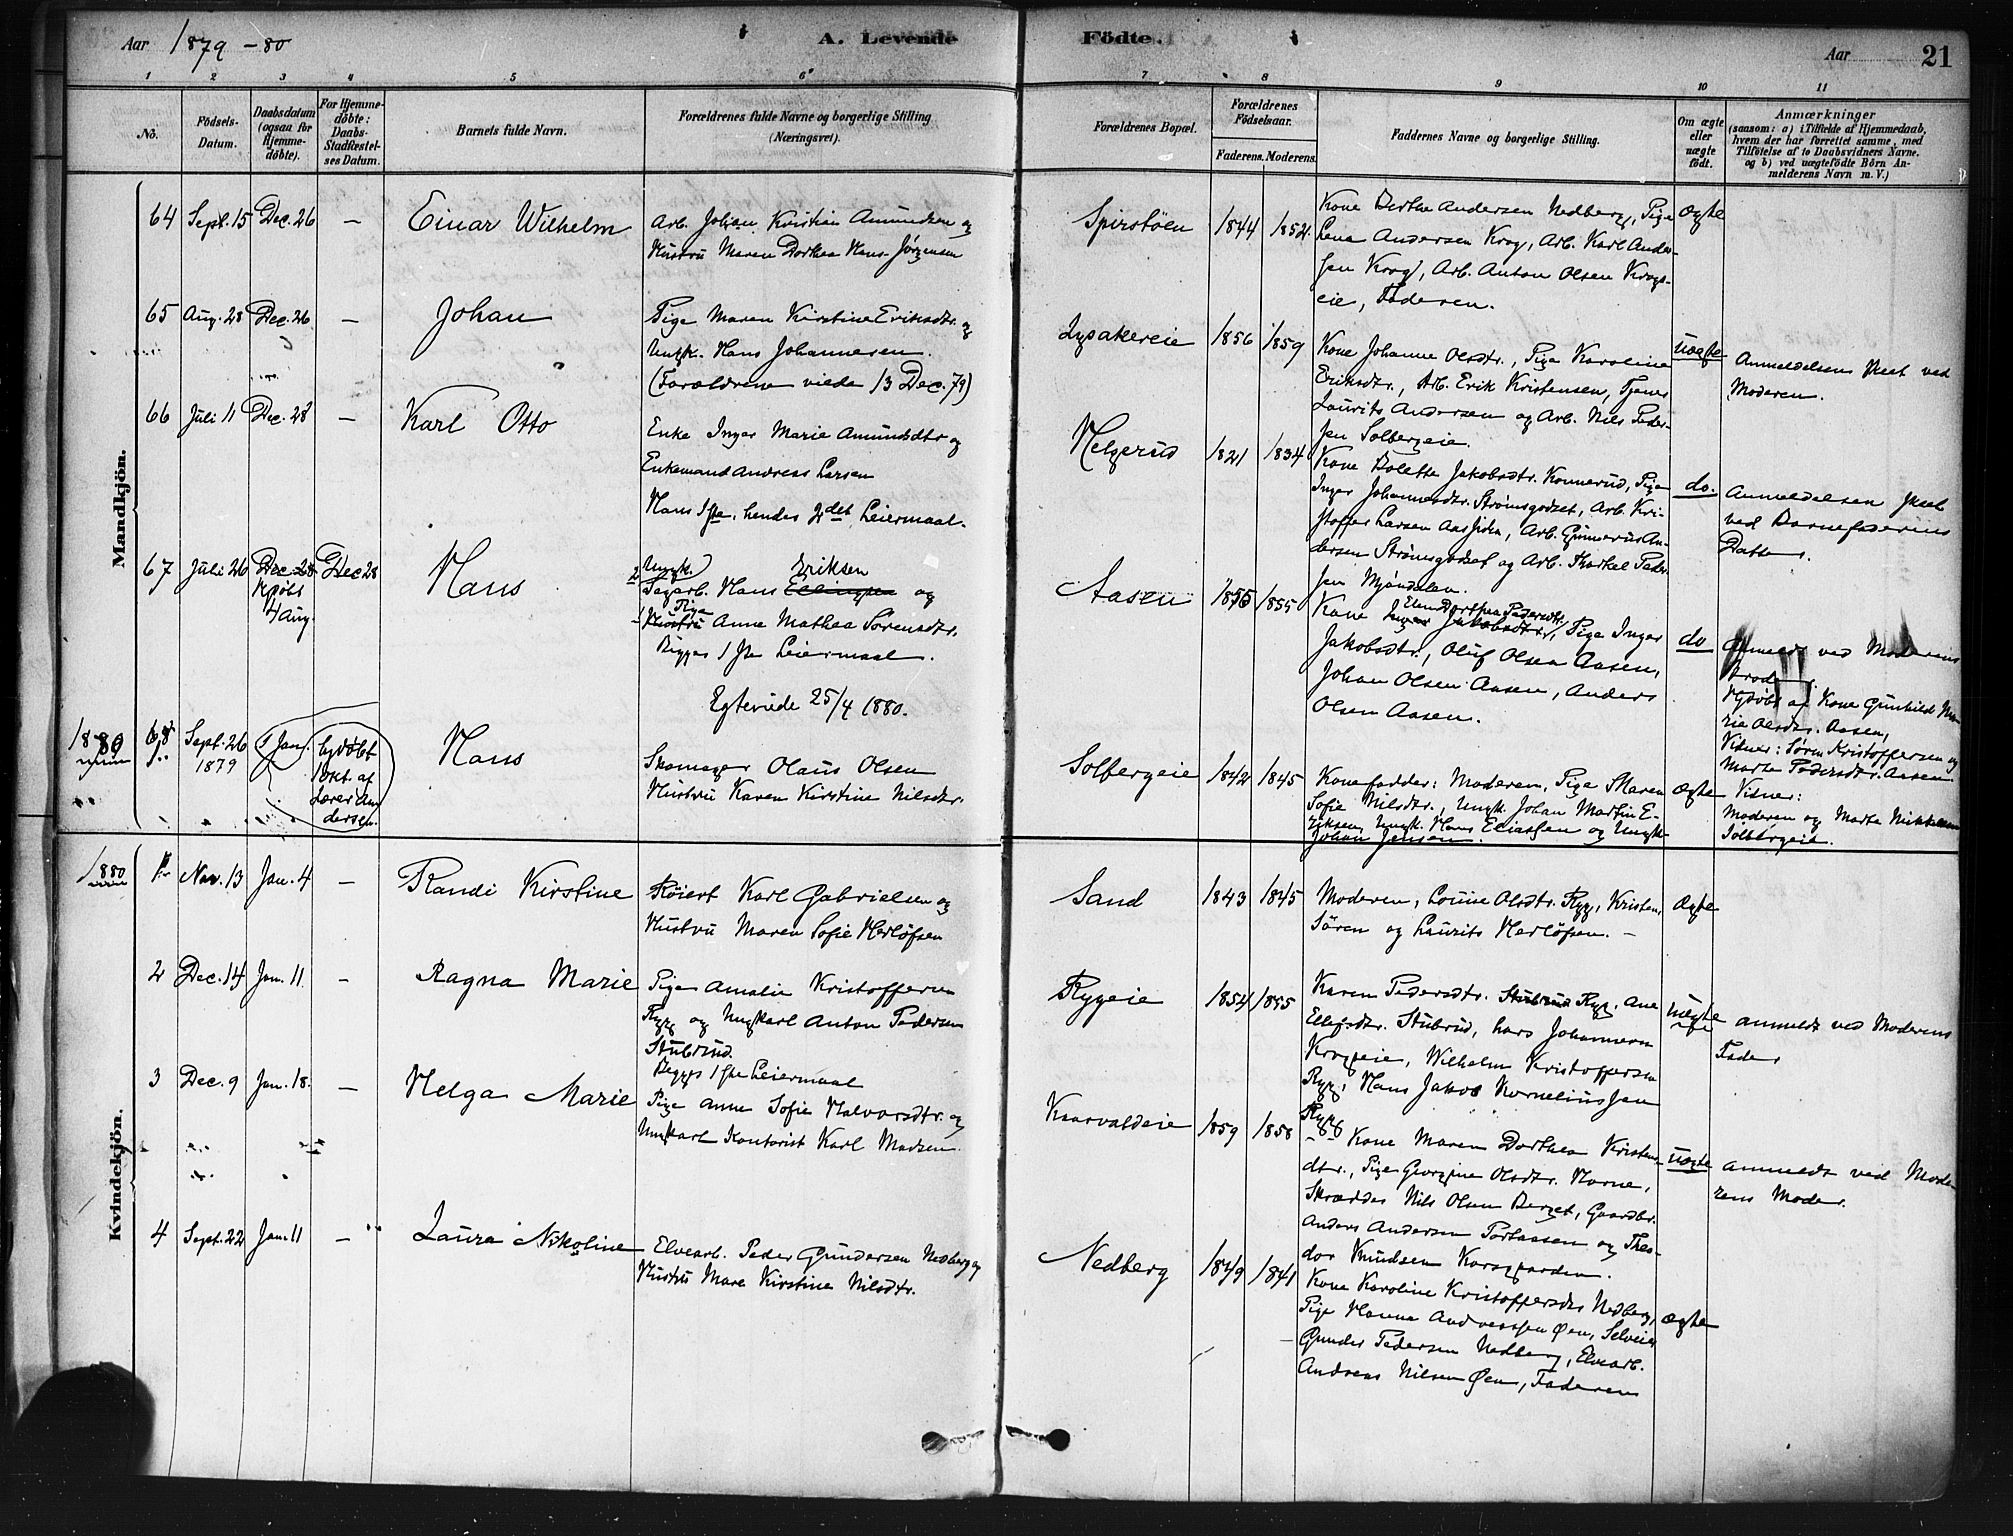 Aar 1879-80
A. Levende Födte.
Aar 21
1 2 3 4 5 6 7 8 9 10 11
No.
Födsels-Datum.
Daabsdatum (ogsaa for Hjemmedöbte).
For Hjemmedöbte: Daabs-Stadfæstelses Datum.
Barnets fulde Navn.
Forældrenes fulde Navne og borgerlige Stilling (Næringsvei).
Forældrenes Bopæl.
Forældrenes Födselsaar.
Faderens. Moderens.
Faddernes Navne og borgerlige Stilling.
Om ægte eller uægte födt.
Anmærkninger
(saasom: a) i Tilfælde af Hjemmedaab, hvem der har forrettet samme, med Tilföielse af to Daabsvidners Navne. og b) ved uægtefödte Börn Anmelderens Navn m. V.)
Mandkjön.
64 Sept. 15 Dec. 26 — Einar Wilhelm
Arb. Johan Kristian Amundsen og
Hustru Maren Dorthea Hans Jørgensen
Spirstöen 1844 1852
Kone Berthe Andersen Nedberg, Pige
Lena Andersen Krog, Arb. Karl Ander-
sen Krog, Arb. Anton Olsen Krogs-
eie, Faderen.
Ægte
65 Aug. 28 Dec. 26 — Johan
Pige Maren Kirstine Eriksdtr. og
Ungk. Hans Johannesen.
(Forældrene viede 13 Dec. 79)
Lysakereie 1856 1859
Kone Johanne Olsdtr., Pige Karoline
Eriksdtr., Arb. Erik Kristensen, Tjener
Laurits Andersen og Arb. Nils Peder-
sen Solbergeie.
uægte
Anmeldelsen skeet ved
Moderen.
66 Juli 11 Dec. 28 — Karl Otto
Enke Inger Marie Amundsdtr og
Enkemand Andreas Larsen
Hans 1ste, hendes 2det Leiermaal.
Helgerud 1821 1834
Kone Bolette Jakobsdtr. Konnerud, Pige
Inger Johannesdtr. Strømsgodset, Arb. Kri-
stoffer Larsen Aassiden, Arb. Gunnerus An-
dersen Strømsgodset og Arb. Thorkel Peder-
sen Mjøndalen.
do.
Anmeldelsen skeet
ved Barnefaderens
Datter.
67 Juli 26 Dec. 28 Dec 28 Hans
Hjdöbt
4 Aug.
Ungk. Eriksen
2 Sagarb. Hans Ellingsen og
Pige
1 Hustru Anne Mathea Sörensdtr.
Begges 1ste Leiermaal.
Egteviede 25/4 1880.
Aasen 1855 1855
Elen Dorthea Pedersdtr.
Kone Inger Jakobsdtr., Pige Inger
Jakobsdtr., Oluf Olsen Aasen,
Johan Olsen Aasen, Anders
Olsen Aasen.
do
Anmeldt ved Moderens
Broder.
Hjdöbt af Kone Gunhild Ma-
ria Olsdtr. Aasen,
Vidner: Sörn Kristoffersen og
Marte Pedersdtr. Aasen
1880 68 Sept. 26 1 Jan. hjdöbt Hans
1879
1 Okt. af
Lærer An-
dersen.
Skomager Olaus Olsen
Hustru Karen Kirstine Nilsdtr.
Solbergeie 1842 1845
Konefadder: Moderen, Pige Maren
Sofie Nilsdtr., Ungk. Johan Martin E-
riksen, Ungk. Hans Eliassen og Ungk.
Johan Jensen.
Ægte
Vidner:
Moderen og Marte Mikkelsen
Solbergeie.
Kvindekjön.
1880 1 Nov. 13 Jan. 4 — Randi Kirstine
Röiert Karl Gabrielsen og
Hustru Maren Sofie Herlöfsen
Sand 1843 1845
Moderen, Louise Olsdtr. Rygg, Kristen,
Sören og Laurits Herlöfsen. —
Ægte
2 Dec. 14 Jan. 11. — Ragna Marie
Pige Amalie Kristoffersen
Rygg og Ungkarl Anton Pedersen
Stubrud.
Begges 1ste Leiermaal
Rygeie 1854 1855
Karen Pedersdtr. Stubrud Rygg, Ane
Ellefsdtr. Stubrud, Lars Johannesen
Kroggeie, Wilhelm Kristoffersen
Rygg, Hans Jakob Korneliussen
Rygg
uægte
anmeldt ved Moderens
Fader
3 Dec. 9 Jan. 18. — Helga Marie
Pige Anne Sofie Halvorsdtr. og
Ungkarl Kontorist Karl Madsen.
Knarvaldeie 1859 1858
Kone Maren Dorthea Kristens-
dtr., Pige Georgine Olsdtr. Horne,
Skrædder Nils Olsen Berget, Gaardbr.
Anders Andersen Portaasen og Theo-
dor Knudsen Korsgaarden.
uægte
anmeldt ved Mode-
rens Moder.
4 Sept. 22 Jan. 11 — Laura Nikoline
Elvearb. Peder Gundersen Nedberg og
Hustru Mare Kirstine Nilsdtr.
Nedberg 1849 1841
Kone Karoline Kristoffersdtr Nedberg,
Pige Hanna Andreassen Øen, Selveier
Gunder Pedersen Nedberg, Elvearb.
Andreas Nilsen Øen, Faderen
ægte